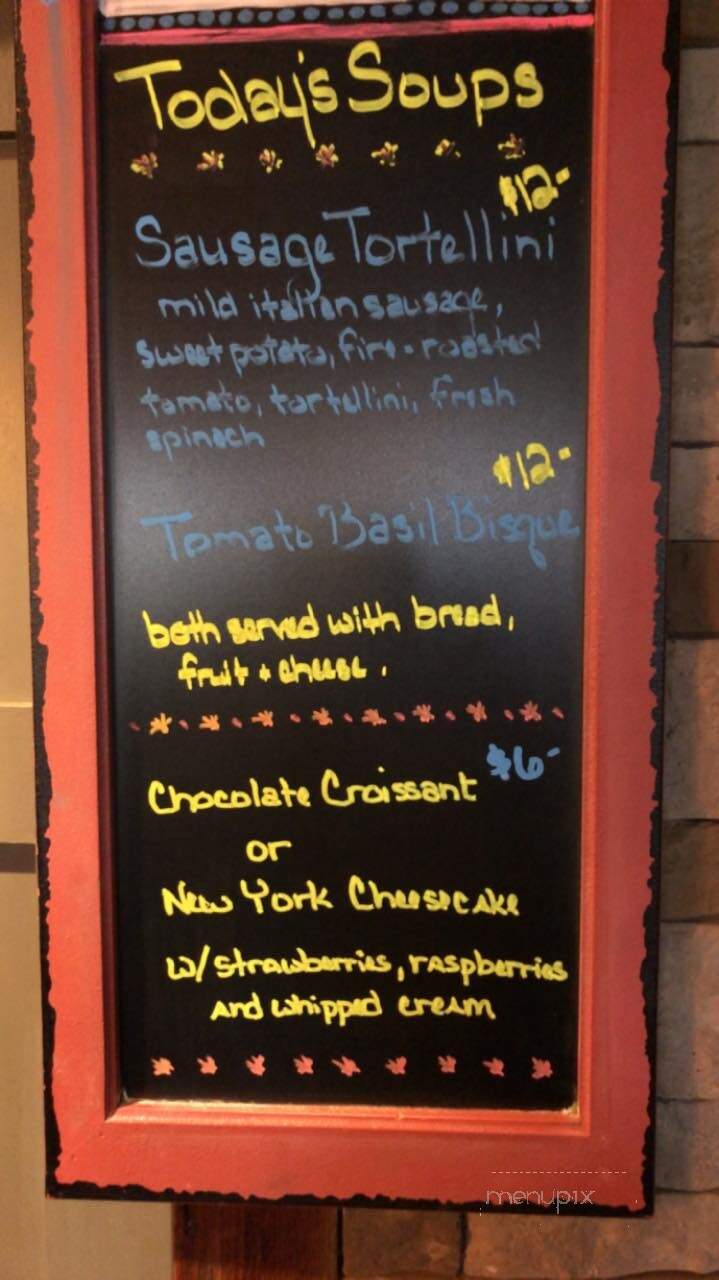 Today's Soups
$12-
Sausage Tortellini
mild italian sausage,
sweet potato, fire-roasted
tomato, tortellini, fresh
spinach
$12-
Tomato Basil Bisque
both served with bread,
fruit + cheese.
$6-
Chocolate Croissant
or
New York Cheesecake
w/ strawberries, raspberries
and whipped cream
menupix